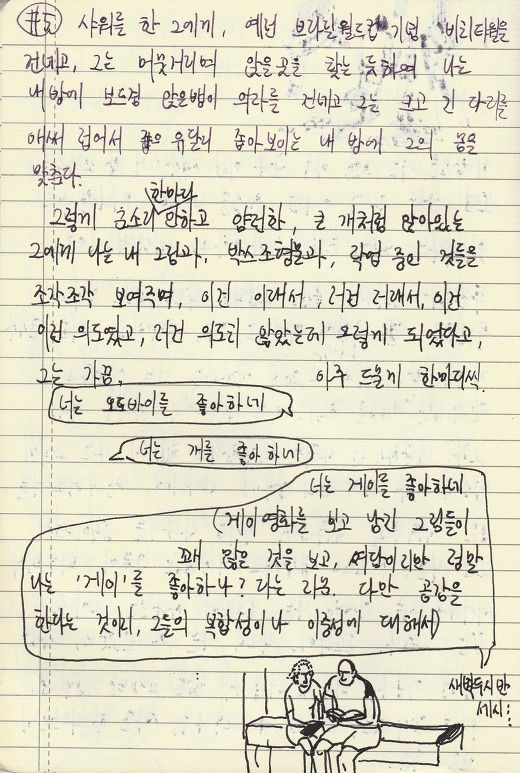 #5 샤워를 한 그에게, 예전 브라질월드컵 기념 비치타월을
건네고, 그는 머뭇거리며 앉을곳을 찾는 듯하여 나는
내 방에 보드랑 앉은뱅이 의자를 건네고 그는 크고 긴 다리를
애써 접어서 유달리 좁아보이는 내 방에 그의 몸을
맞춘다.
한마디
그렇게 큰소리 안하고 얌전한, 큰 개처럼 앉아있는
그에게 나는 내 그림과, 박스조형물과, 작업 중인 것들을
조각조각 보여주며, 이건 이래서, 저건 저래서, 이건
이런 의도였고, 저건 의도치 않았는데 요렇게 되었다고,
그는 가끔, 아주 드물게 한마디씩.
너는 오토바이를 좋아하네
너는 개를 좋아하네
너는 게이를 좋아하네
(게이영화를 보고 남긴 그림들이
꽤 많은 것을 보고, 여담이지만 정말
나는 '게이'를 좋아하나? 라는 의문. 다만 공감을
한다는 것이지, 그들의 복합성이나 이중성에 대해서)
새벽두시 반
세시: